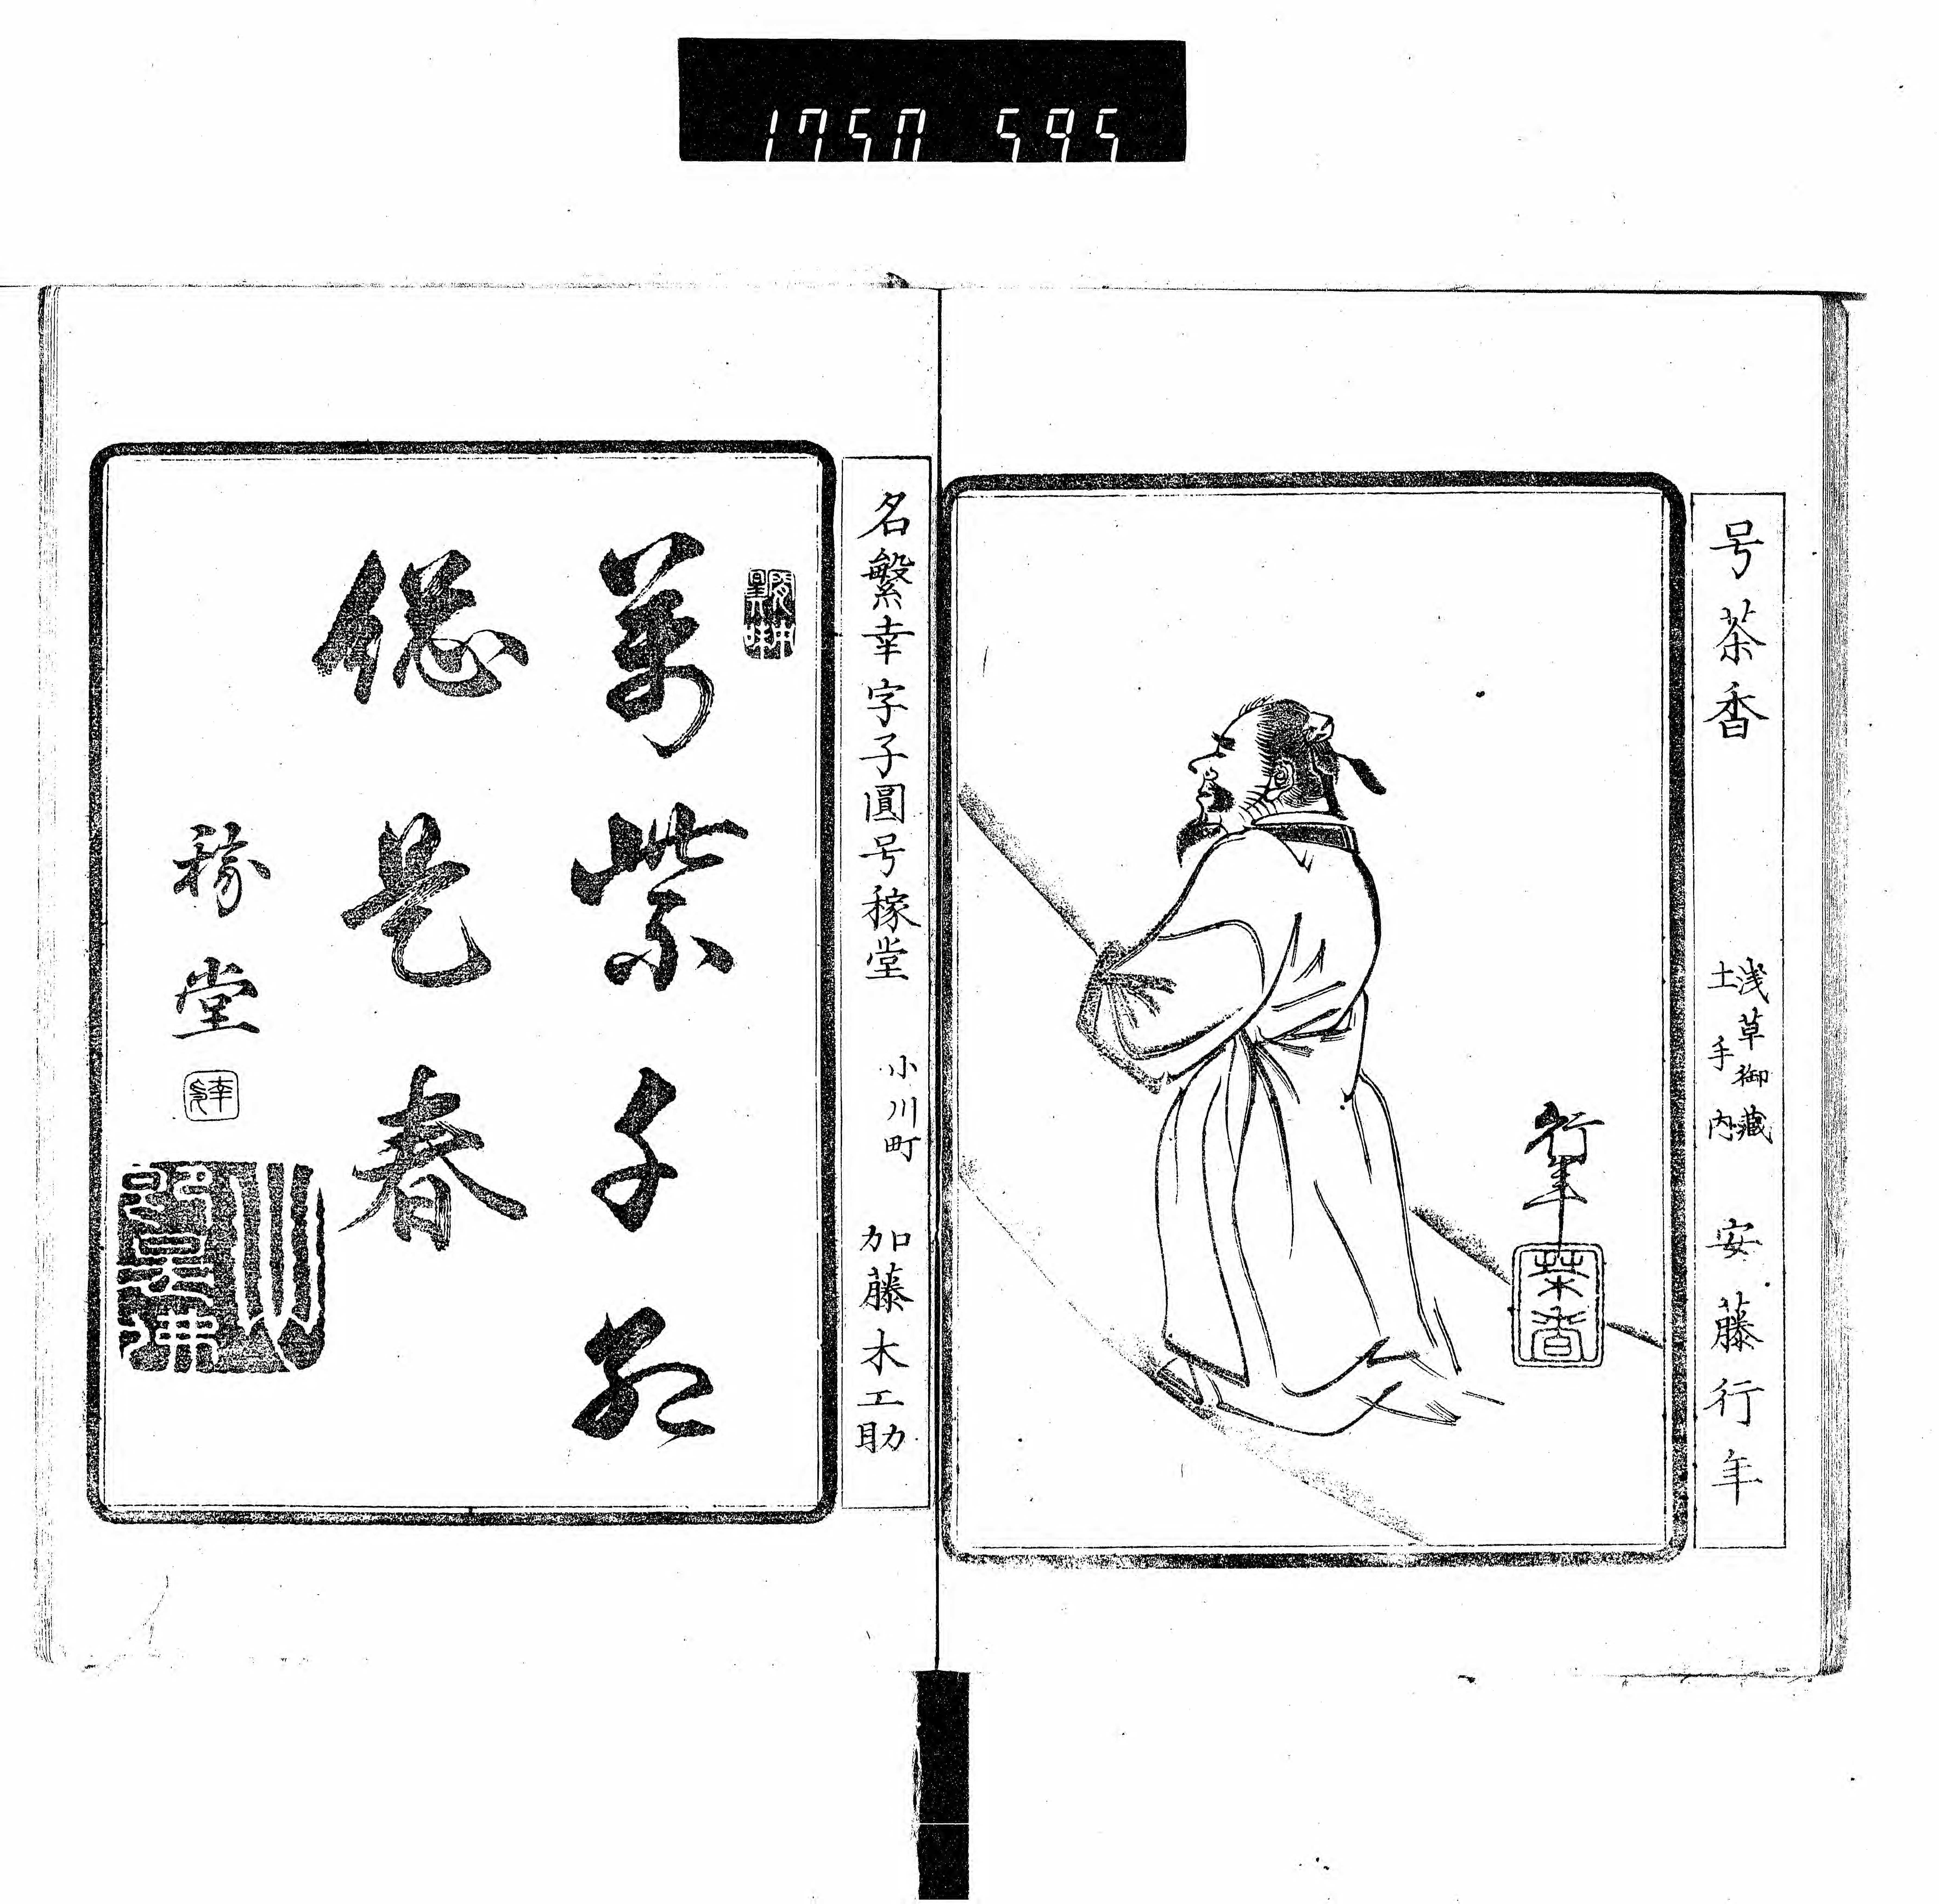 1750 595
号茶香 浅草御藏土手内 安藤行年
行年
茶香
名繁幸字子圓号稼堂 小川町 加藤木工助
萬紫千紅
總是春
稼堂